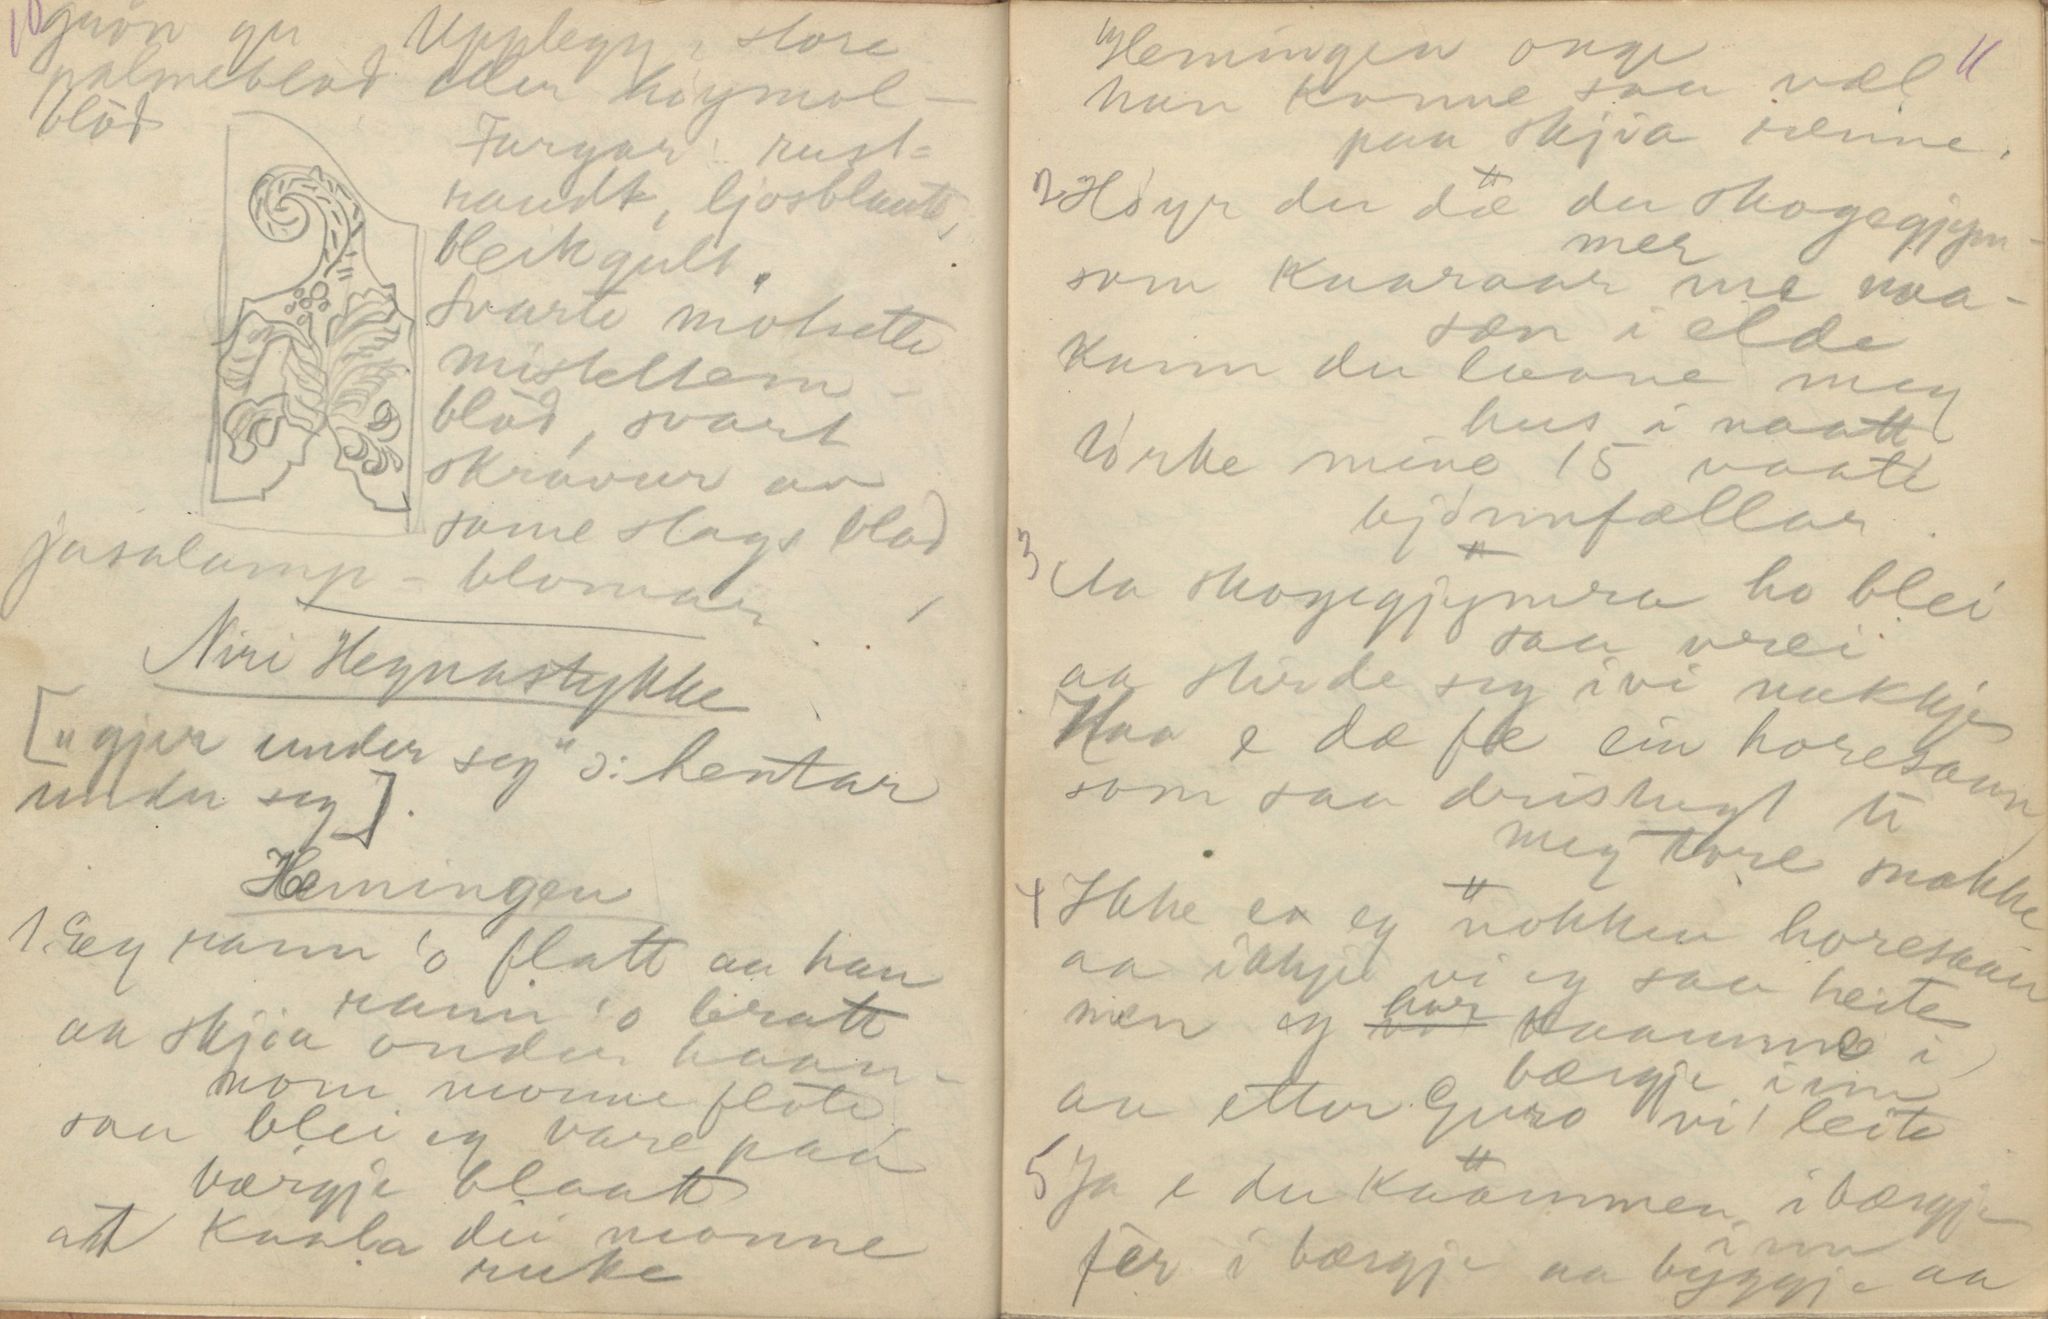 10
grøn gu Upplegg, store
palmeblad eller høymol-
blad
Fargar: rust-
raudt, ljosblaatt,
bleikgult.
svarte
mistelltein-
blad, svart
skravur av
same slags blad
- blomar
Niri Heynastykke
["gjer under seg" ɔ: hentar
under seg].
Hemingen
1. Eg rann 'o flatt aa han
rann 'o bratt
aa skjia under haan-
nom monne fløte
saa blei eg vare paa
bærgje blaatt
att kaala dei monne
ruke
11
"Hemingen onge
han konne saa væl
paa skjia renne.
2 Høyr du dæ du skogegjym-
mer
som kaaraar me naa-
sæn i elde
Kann du laane meg
hus i naatt
tørke mine 15 vaate
bjønnfællar
3 Aa skogegjymra ho blei
saa vrei
aa stirde seg ivi nakkje
Haa e dæ fæ ein horesaun
som saa dristugt ti
meg tore snakke
4 Ikke er eg nokken horesaun
aa ikkje vi eg saa heite
men eg har kaamme i
bærgje inn
aa etter Guro vi leite
5 Ja e du kaammen i bærgje
inn
før i bærgje aa byggje aa